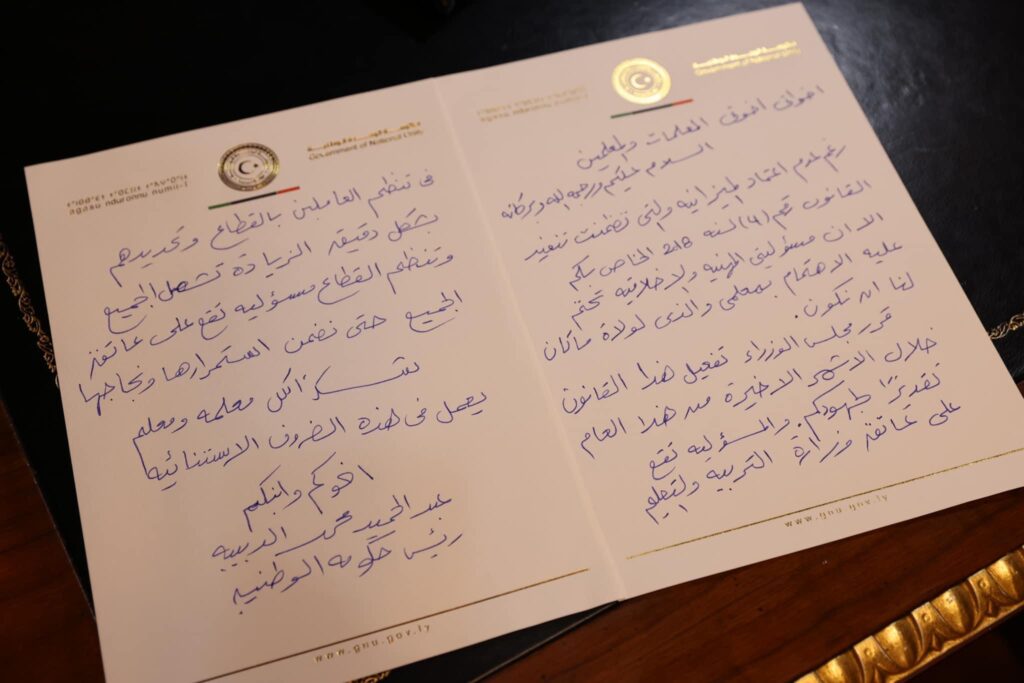 حكومة الوحدة الوطنية
Government of National Unity
agasu nduronnu numii-t
اخواتى اخوتى المعلمات والمعلمين
السلام عليكم ورحمه الله وبركاته
رغم عدم اعتماد الميزانيه ولتى تضمنت تنفيد
القانون رقم (4) لسنه 2018 الخاص بكم
الا ان مسؤليتى المهنيه والاخلاقيه تحتم
عليه الاهتمام بمعلمى والذى لولاة ماكان
لنا ان نكون.
قرر مجلس الوزراء تفعيل هذا القانون
خلال الاشهر الاخيرة من هذا العام
تقديرًا لجهودكم. والمسؤليه تقع
على عاتقة وزارة التربيه ولتعليم
www.gnu.gov.ly
حكومة الوحدة الوطنية
Government of National Unity
agasu nduronnu numii-t
فى تنظيم العاملين بالقطاع وتحديدهم
بشكل دقيقه الزيادة تشمل الجميع
وتنظيم القطاع مسؤليه تقع على عاتقة
الجميع حتى نضمن استمرارها ونجاحها
شكرًا لكل معلمه ومعلم
يعمل فى هذة الضروف الاستتنائيه
اخوكم وابنكم
عبد الحميد محمد الدبيبه
رئيس حكومه الوطنيه
www.gnu.gov.ly